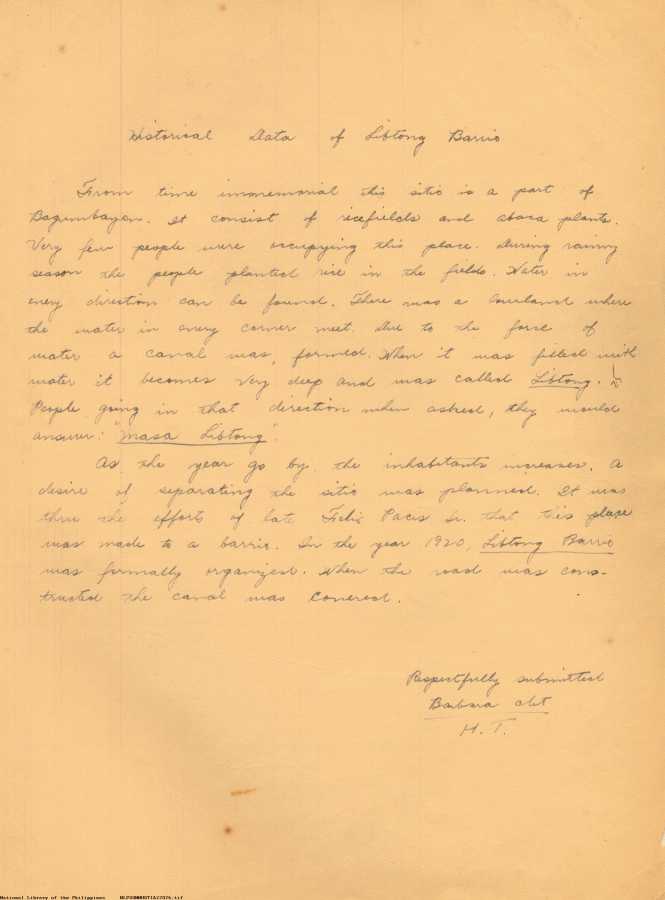 Historical Data of Libtong Barrio
From time immemorial this sitio is a part of
Bagumbayan. It consist of ricefields and abaca plants.
Very few people were occupying this place. During rainy
season the people planted rice in the fields. Water in
every direction can be found. There was a lowland where
the water in every corner meet. Due to the force of
water a canal was formed. When it was filled with
water it becomes very deep and was called Libtong.
People going in that direction when asked, they would
answer: "Masa Libtong".
As the year go by the inhabitants increases. A
desire of separating the sitio was planned. It was
thru the efforts of late Felix Pacis Sr. that this place
was made to a barrio. In the year 1920, Libtong Barrio
was formally organized. When the road was cons-
tructed the canal was covered.
Respectfully submitted
Barbara
H. T.
National Library of the Philippines